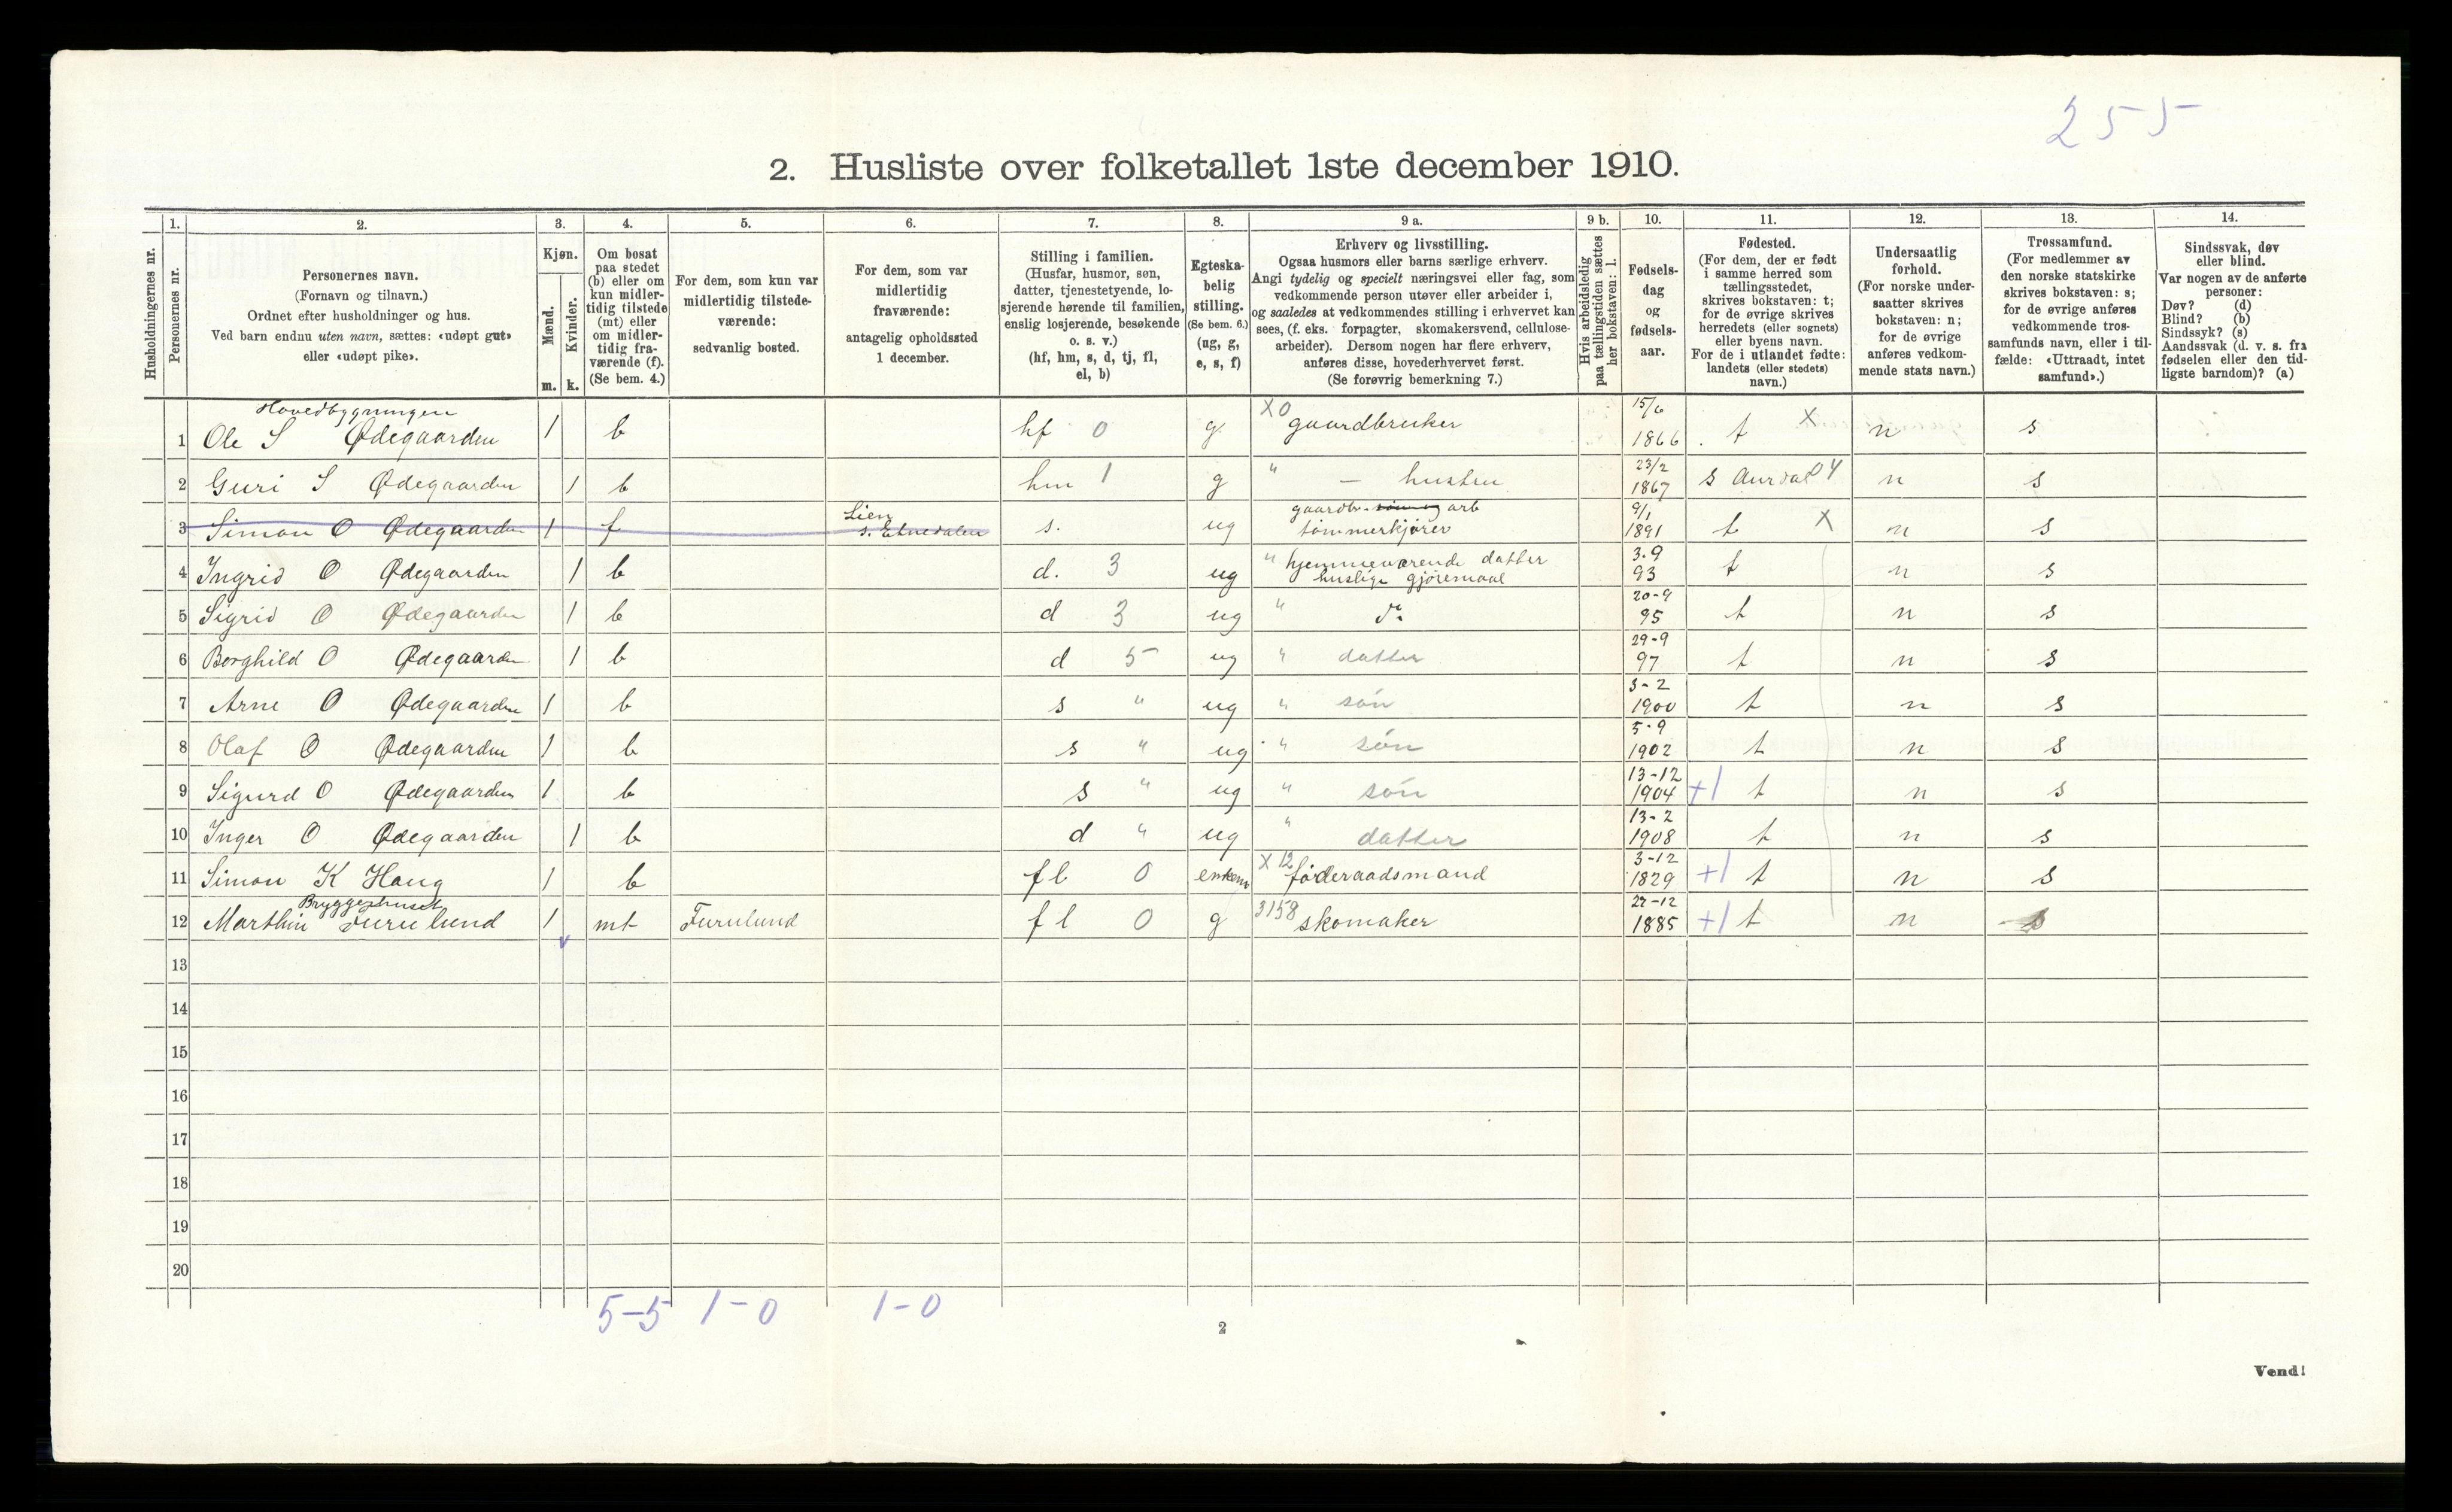 255
2. Husliste over folketallet 1ste december 1910.
Husholdningernes nr.
1. Personernes nr.
2. Personernes navn. (Fornavn og tilnavn.) Ordnet efter husholdninger og hus. Ved barn endnu uten navn, sættes: «udøpt gut» eller «udøpt pike».
3. Kjøn. Mænd. m. Kvinder. k.
4. Om bosat paa stedet (b) eller om kun midlertidig tilstede (mt) eller om midlertidig fraværende (f). (Se bem. 4.)
5. For dem, som kun var midlertidig tilstedeværende: sedvanlig bosted.
6. For dem, som var midlertidig fraværende: antagelig opholdssted 1 december.
7. Stilling i familien. (Husfar, husmor, søn, datter, tjenestetyende, losjerende hørende til familien, enslig losjerende, besøkende o. s. v.) (hf, hm, s, d, tj, fl, el, b)
8. Egteskabelig stilling. (Se bem. 6.) (ug, g, e, s, f)
9 a. Erhverv og livsstilling. Ogsaa husmors eller barns særlige erhverv. Angi tydelig og specielt næringsvei eller fag, som vedkommende person utøver eller arbeider i, og saaledes at vedkommendes stilling i erhvervet kan sees, (f. eks. forpagter, skomakersvend, cellulosearbeider). Dersom nogen har flere erhverv, anføres disse, hovederhvervet først. (Se forøvrig bemerkning 7.)
9 b. Hvis arbeidsledig paa tællingstiden sættes her bokstaven: l.
10. Fødselsdag og fødselsaar.
11. Fødested. (For dem, der er født i samme herred som tællingsstedet, skrives bokstaven: t; for de øvrige skrives herredets (eller sognets) eller byens navn. For de i utlandet fødte: landets (eller stedets) navn.)
12. Undersaatlig forhold. (For norske undersaatter skrives bokstaven: n; for de øvrige anføres vedkommende stats navn.)
13. Trossamfund. (For medlemmer av den norske statskirke skrives bokstaven: s; for de øvrige anføres vedkommende trossamfunds navn, eller i tilfælde: «Uttraadt, intet samfund».)
14. Sindssvak, døv eller blind. Var nogen av de anførte personer: Døv? (d) Blind? (b) Sindssyk? (s) Aandssvak (d. v. s. fra fødselen eller den tidligste barndom)? (a)
Hovedbygningen
1 Ole S Ødegaarden 1 b hf 0 g X0 gaardbruker 15/6 1866 t X n s
2 Guri S Ødegaarden 1 b hm 1 g " — hustru 23/2 1867 s Aurdal 04 n s
3 Simon O Ødegaarden 1 f Lien s. Etnedalen s. ug gaardbr. søn og arb tømmerkjører 9/1 1891 t X n s
4 Ingrid O Ødegaarden 1 b d. 3 ug " hjemmeværende datter huslige gjøremaal 3-9 93 t n s
5 Sigrid O Ødegaarden 1 b d 3 ug " do 20-9 95 t n s
6 Borghild O Ødegaarden 1 b d 5 ug " datter 29-9 97 t n s
7 Arne O Ødegaarden 1 b s " ug " søn 3-2 1900 t n s
8 Olaf O Ødegaarden 1 b s " ug " søn 5-9 1902 t n s
9 Sigurd O Ødegaarden 1 b s " ug " søn 13-12 1904 +1 t n s
10 Inger O Ødegaarden 1 b d " ug " datter 13-2 1908 t n s
11 Simon K Haug 1 b fl 0 enkem X 12 føderaadsmand 3-12 1829 +1 t n s
Bryggerhuset
12 Marthin Furulund 1 mt Furulund fl 0 g 3158 skomaker 27-12 1885 +1 t n s
13
14
15
16
17
18
19
20
5-5 1-0 1-0
2
Vend!